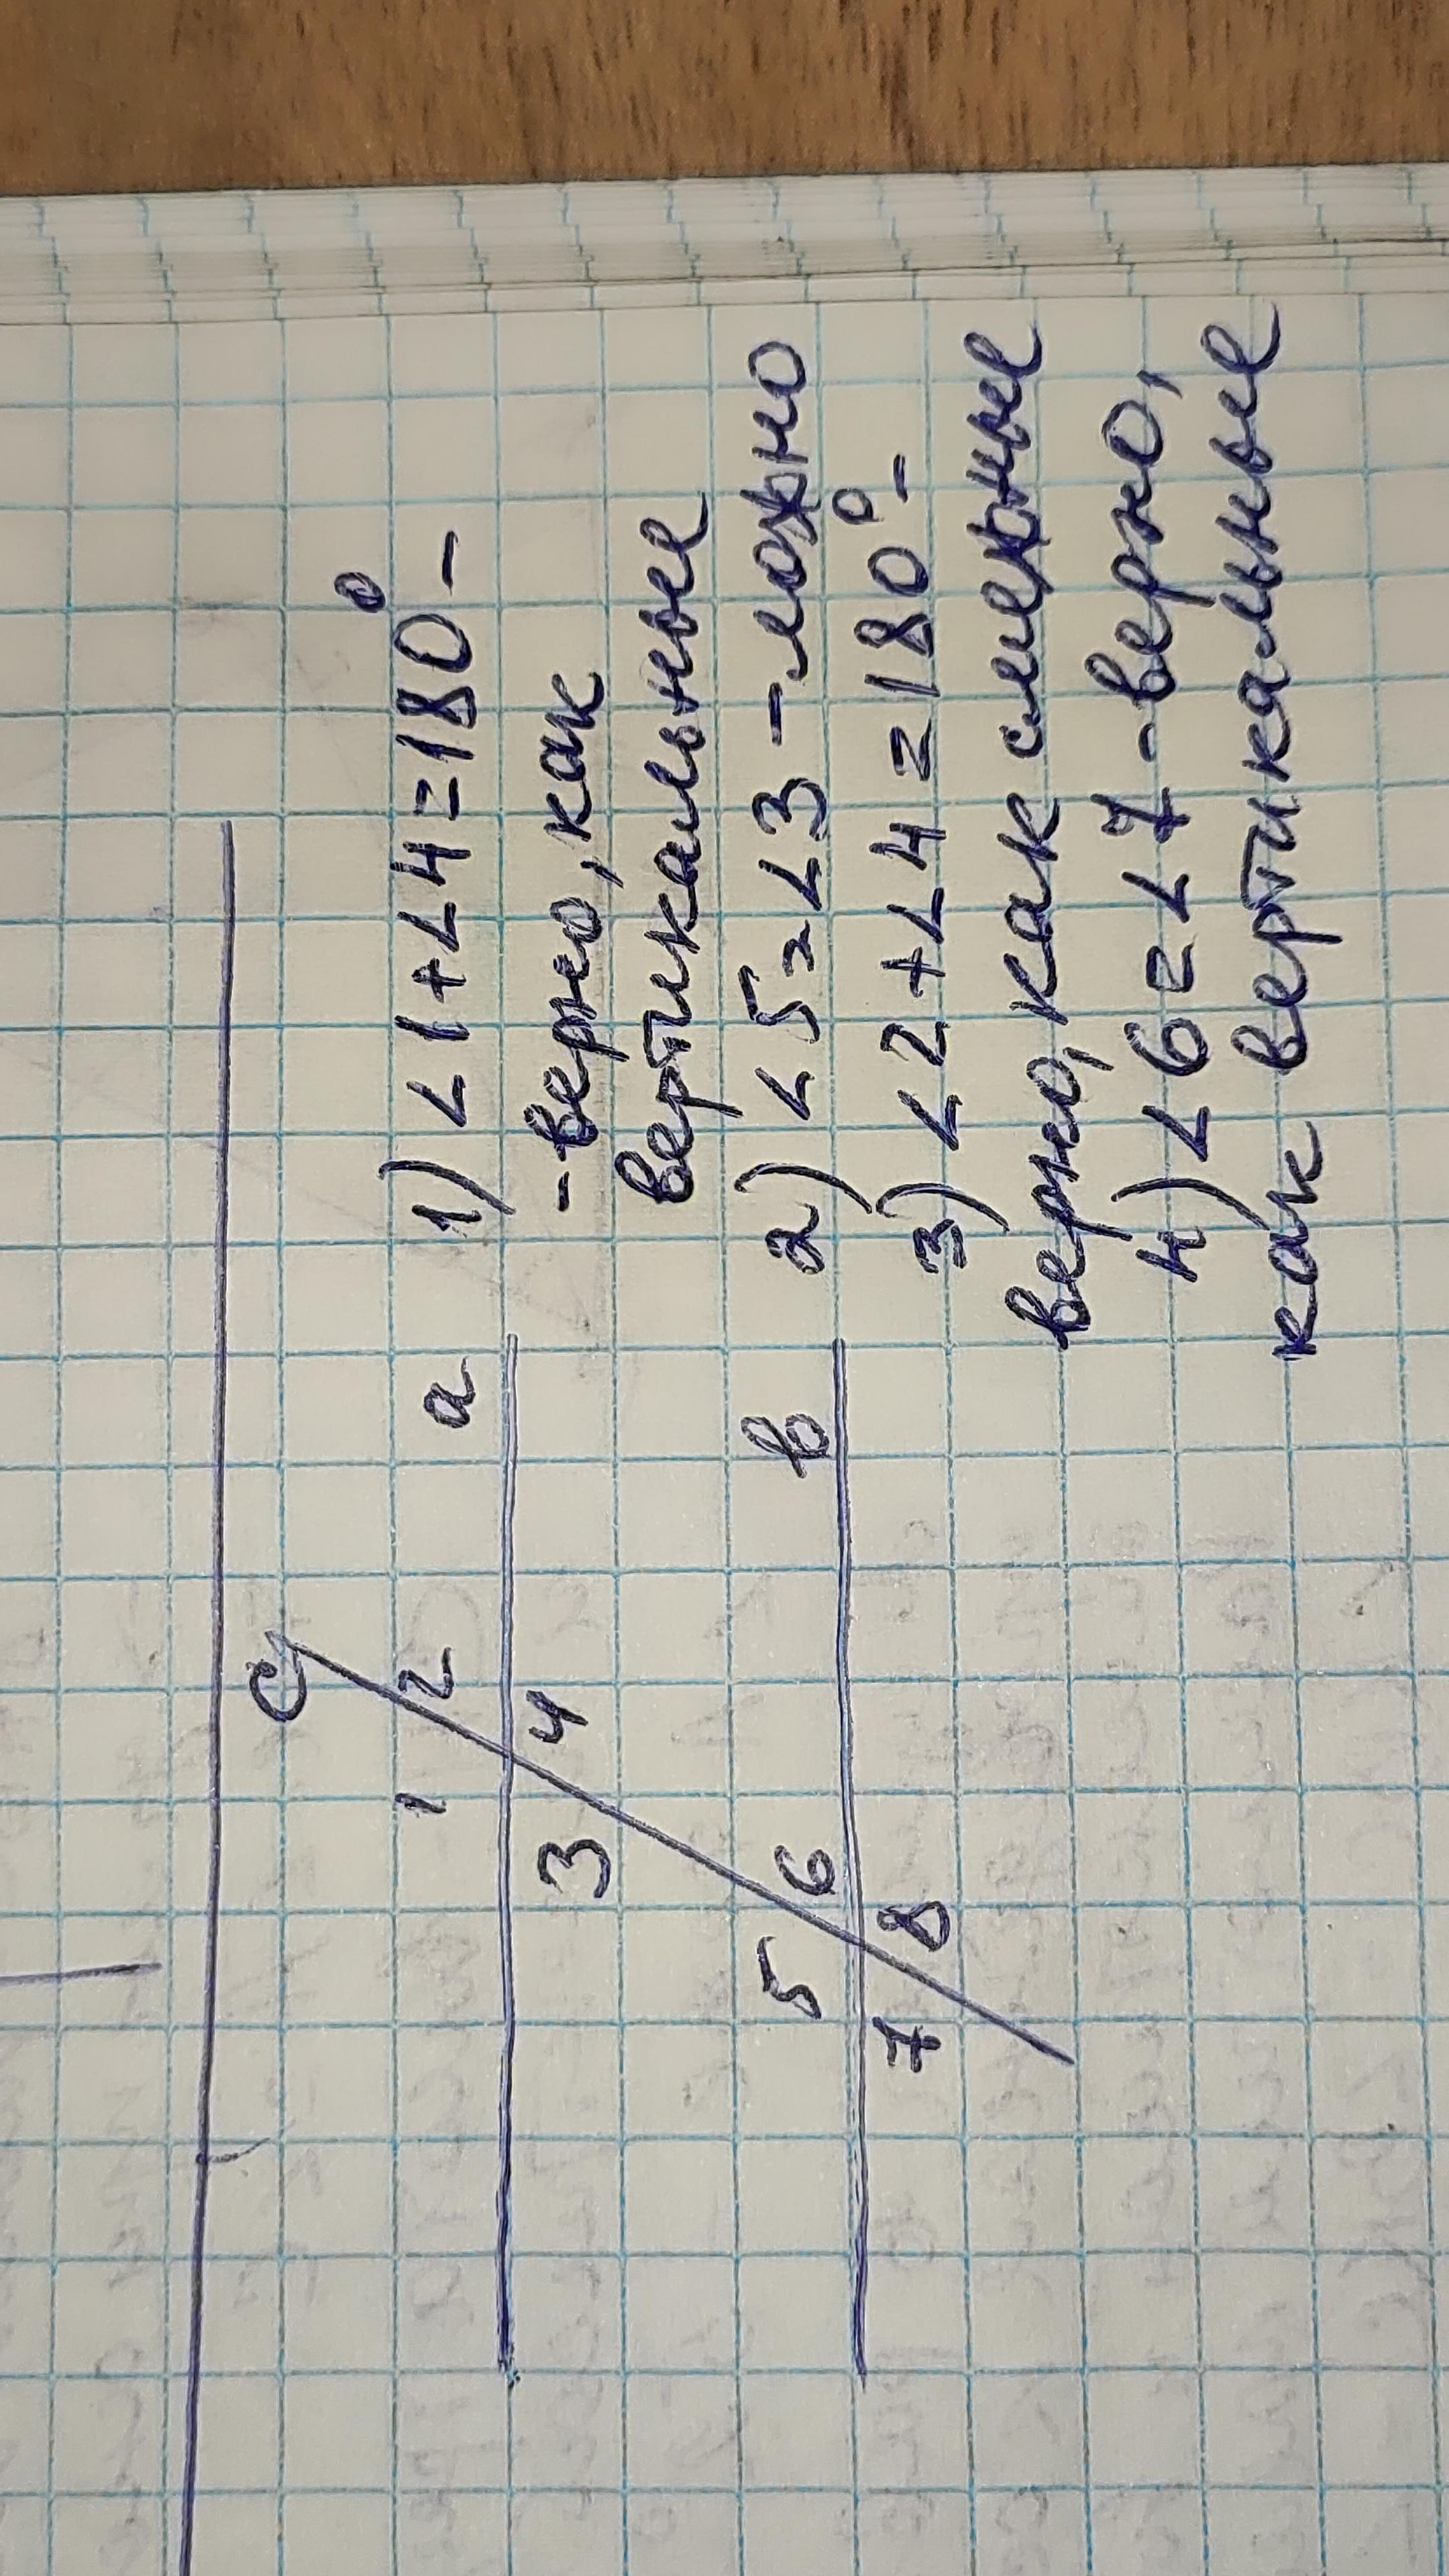 c
a
1 2
3 4
b
5 6
7 8
1) ∠1+∠4=180° -
-верно, как
вертикальные
2) ∠5=∠3 - ложно
3) ∠2+∠4=180° -
верно, как смежные
4) ∠6=∠7 - верно,
как вертикальные